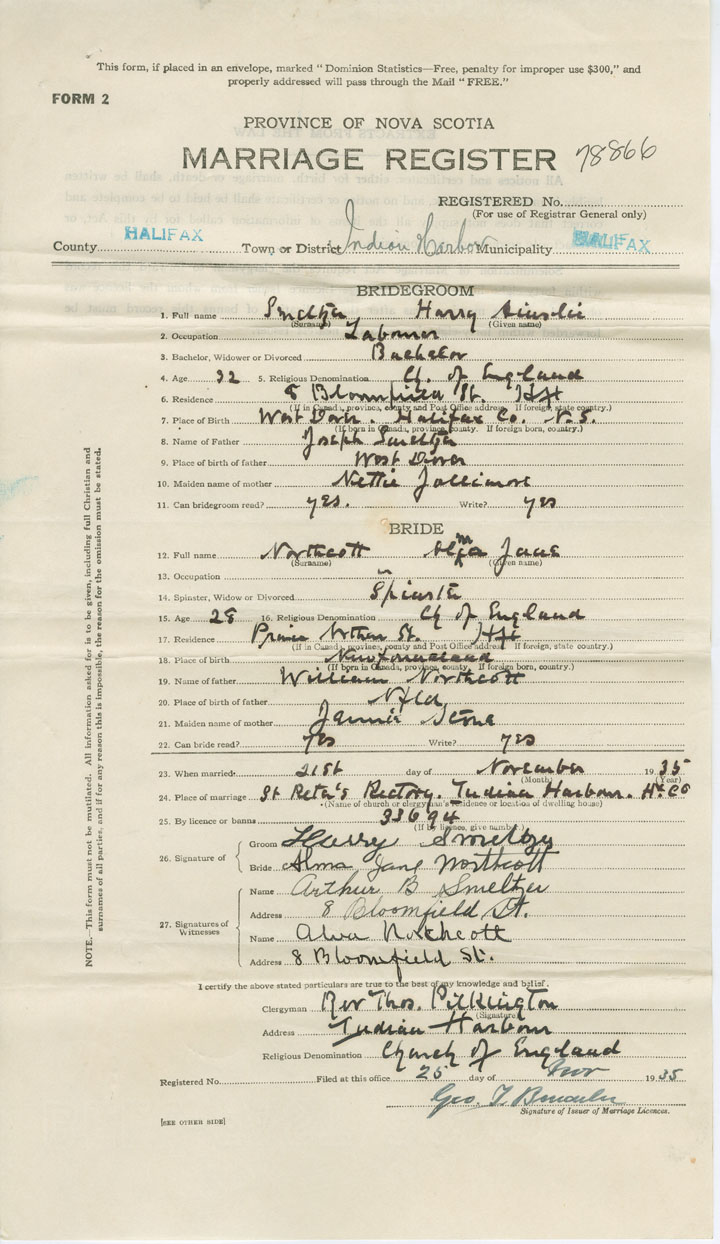 This form, if placed in an envelope, marked “ Dominion Statistics—Free, penalty for improper use $300,” and
properly addressed will pass through the Mail “ FREE.”
FORM 2
PROVINCE OF NOVA SCOTIA
MARRIAGE REGISTER 78866
REGISTERED No.
(For use of Registrar General only)
County HALIFAX Town or District Indian Harbor Municipality HALIFAX
BRIDEGROOM
1. Full name Smeltzer Harry Ainslie
(Surname) (Given name)
2. Occupation Labourer
3. Bachelor, Widower or Divorced Bachelor
4. Age 32 5. Religious Denomination Ch. of England
6. Residence 8 Bloomfield St. Hfx
(If in Canada, province, county and Post Office address. If foreign, state country.)
7. Place of Birth West Dover. Halifax Co. N. S.
(If born in Canada, province, county. If foreign born, country.)
8. Name of Father Joseph Smeltzer
9. Place of birth of father West Dover
10. Maiden name of mother Nettie Jollimore
11. Can bridegroom read? yes. Write? yes
BRIDE
12. Full name Northcott Alma Jane
(Surname) (Given name)
13. Occupation
14. Spinster, Widow or Divorced Spinster
15. Age 28 16. Religious Denomination Ch of England
17. Residence Prince Arthur St. Hfx
(If in Canada, province, county and Post Office address. If foreign, state country.)
18. Place of birth Newfoundland
(If born in Canada, province, county. If foreign born, country.)
19. Name of father William Northcott
20. Place of birth of father Nfld
21. Maiden name of mother Jannie Stone
22. Can bride read? yes Write? yes
23. When married 21st day of November 19 35
(Month) (Year)
24. Place of marriage St Peter's Rectory. Indian Harbour. Hx Co
(Name of church or clergyman's residence or location of dwelling house)
25. By licence or banns 33694
(If by licence, give number.)
26. Signature of
Groom Harry Smeltzer
Bride Alma Jane Northcott
27. Signatures of Witnesses
Name Arthur B Smeltzer
Address 8 Bloomfield St.
Name Alva Northcott
Address 8 Bloomfield St.
I certify the above stated particulars are true to the best of my knowledge and belief.
Clergyman Rev Thos. Pilkington
(Signature)
Address Indian Harbour
Religious Denomination Church of England
Registered No. Filed at this office 25 day of Nov 19 35
Geo. T.
Signature of Issuer of Marriage Licences.
[SEE OTHER SIDE]
NOTE.—This form must not be mutilated. All information asked for is to be given, including full Christian and
surnames of all parties, and if for any reason this is impossible, the reason for the omission must be stated.